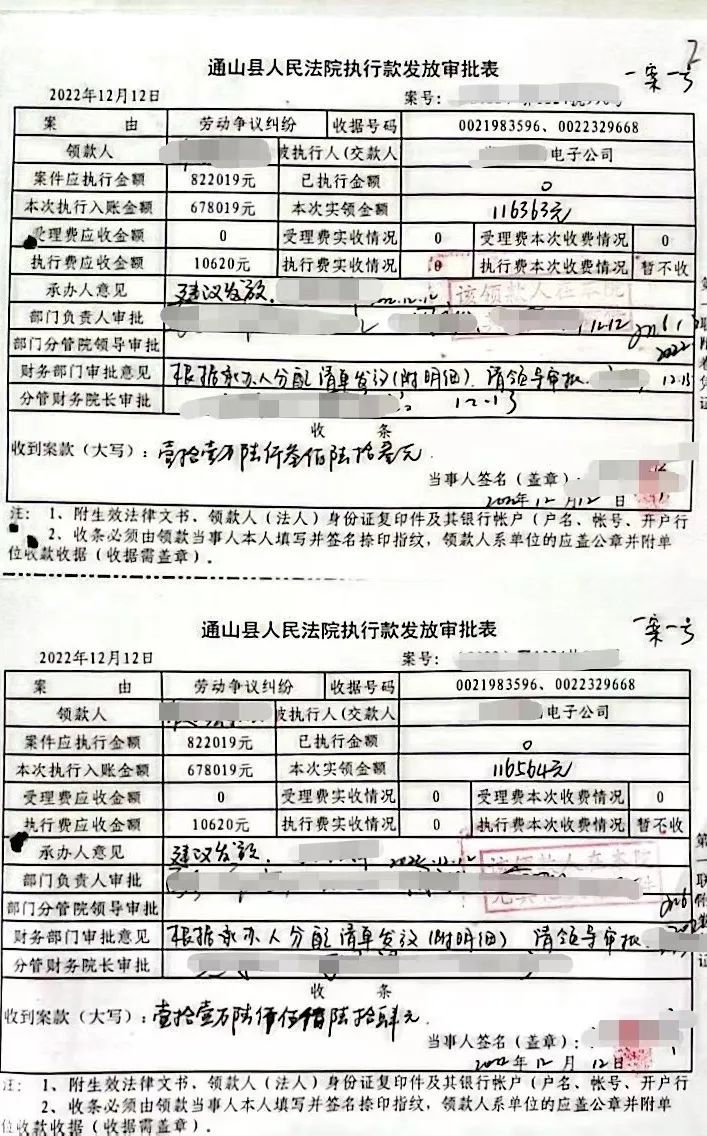 通山县人民法院执行款发放审批表
一案一号
2022年12月12日 案号：
案 由 劳动争议纠纷 收据号码 0021983596、0022329668
领款人 被执行人(交款人 电子公司
案件应执行金额 822019元 已执行金额 0
本次执行入账金额 678019元 本次实领金额 116363元
受理费应收金额 0 受理费实收情况 0 受理费本次收费情况 0
执行费应收金额 10620元 执行费实收情况 0 执行费本次收费情况 暂不收
承办人意见 建议发放. 该领款人在本院
部门负责人审批 12.12
部门分管院领导审批
财务部门审批意见 根据承办人分配清单发议(附明细). 请领导审批. 12.13
分管财务院长审批 12.13
收 条
收到案款（大写）：壹拾壹万陆仟叁佰陆拾叁元
当事人签名（盖章）：
2022年12月12日
注： 1、附生效法律文书、领款人（法人）身份证复印件及其银行帐户（户名、帐号、开户行
2、收条必须由领款当事人本人填写并签名捺印指纹，领款人系单位的应盖公章并附单
位收款收据（收据需盖章）．
通山县人民法院执行款发放审批表
一案一号
2022年12月12日 案号：
案 由 劳动争议纠纷 收据号码 0021983596、0022329668
领款人 被执行人(交款人 电子公司
案件应执行金额 822019元 已执行金额 0
本次执行入账金额 678019元 本次实领金额 116564元
受理费应收金额 0 受理费实收情况 0 受理费本次收费情况 0
执行费应收金额 10620元 执行费实收情况 0 执行费本次收费情况 暂不收
承办人意见 建议发放. 2022.12.12 该领款人在本院
部门负责人审批
部门分管院领导审批
财务部门审批意见 根据承办人分配清单发议(附明细) 请领导审批.
分管财务院长审批
收 条
收到案款（大写）：壹拾壹万陆仟伍佰陆拾肆元
当事人签名（盖章）：
2022年12月12日
注： 1、附生效法律文书、领款人（法人）身份证复印件及其银行帐户（户名、帐号、开户行
2、收条必须由领款当事人本人填写并签名捺印指纹，领款人系单位的应盖公章并附单
位收款收据（收据需盖章）．